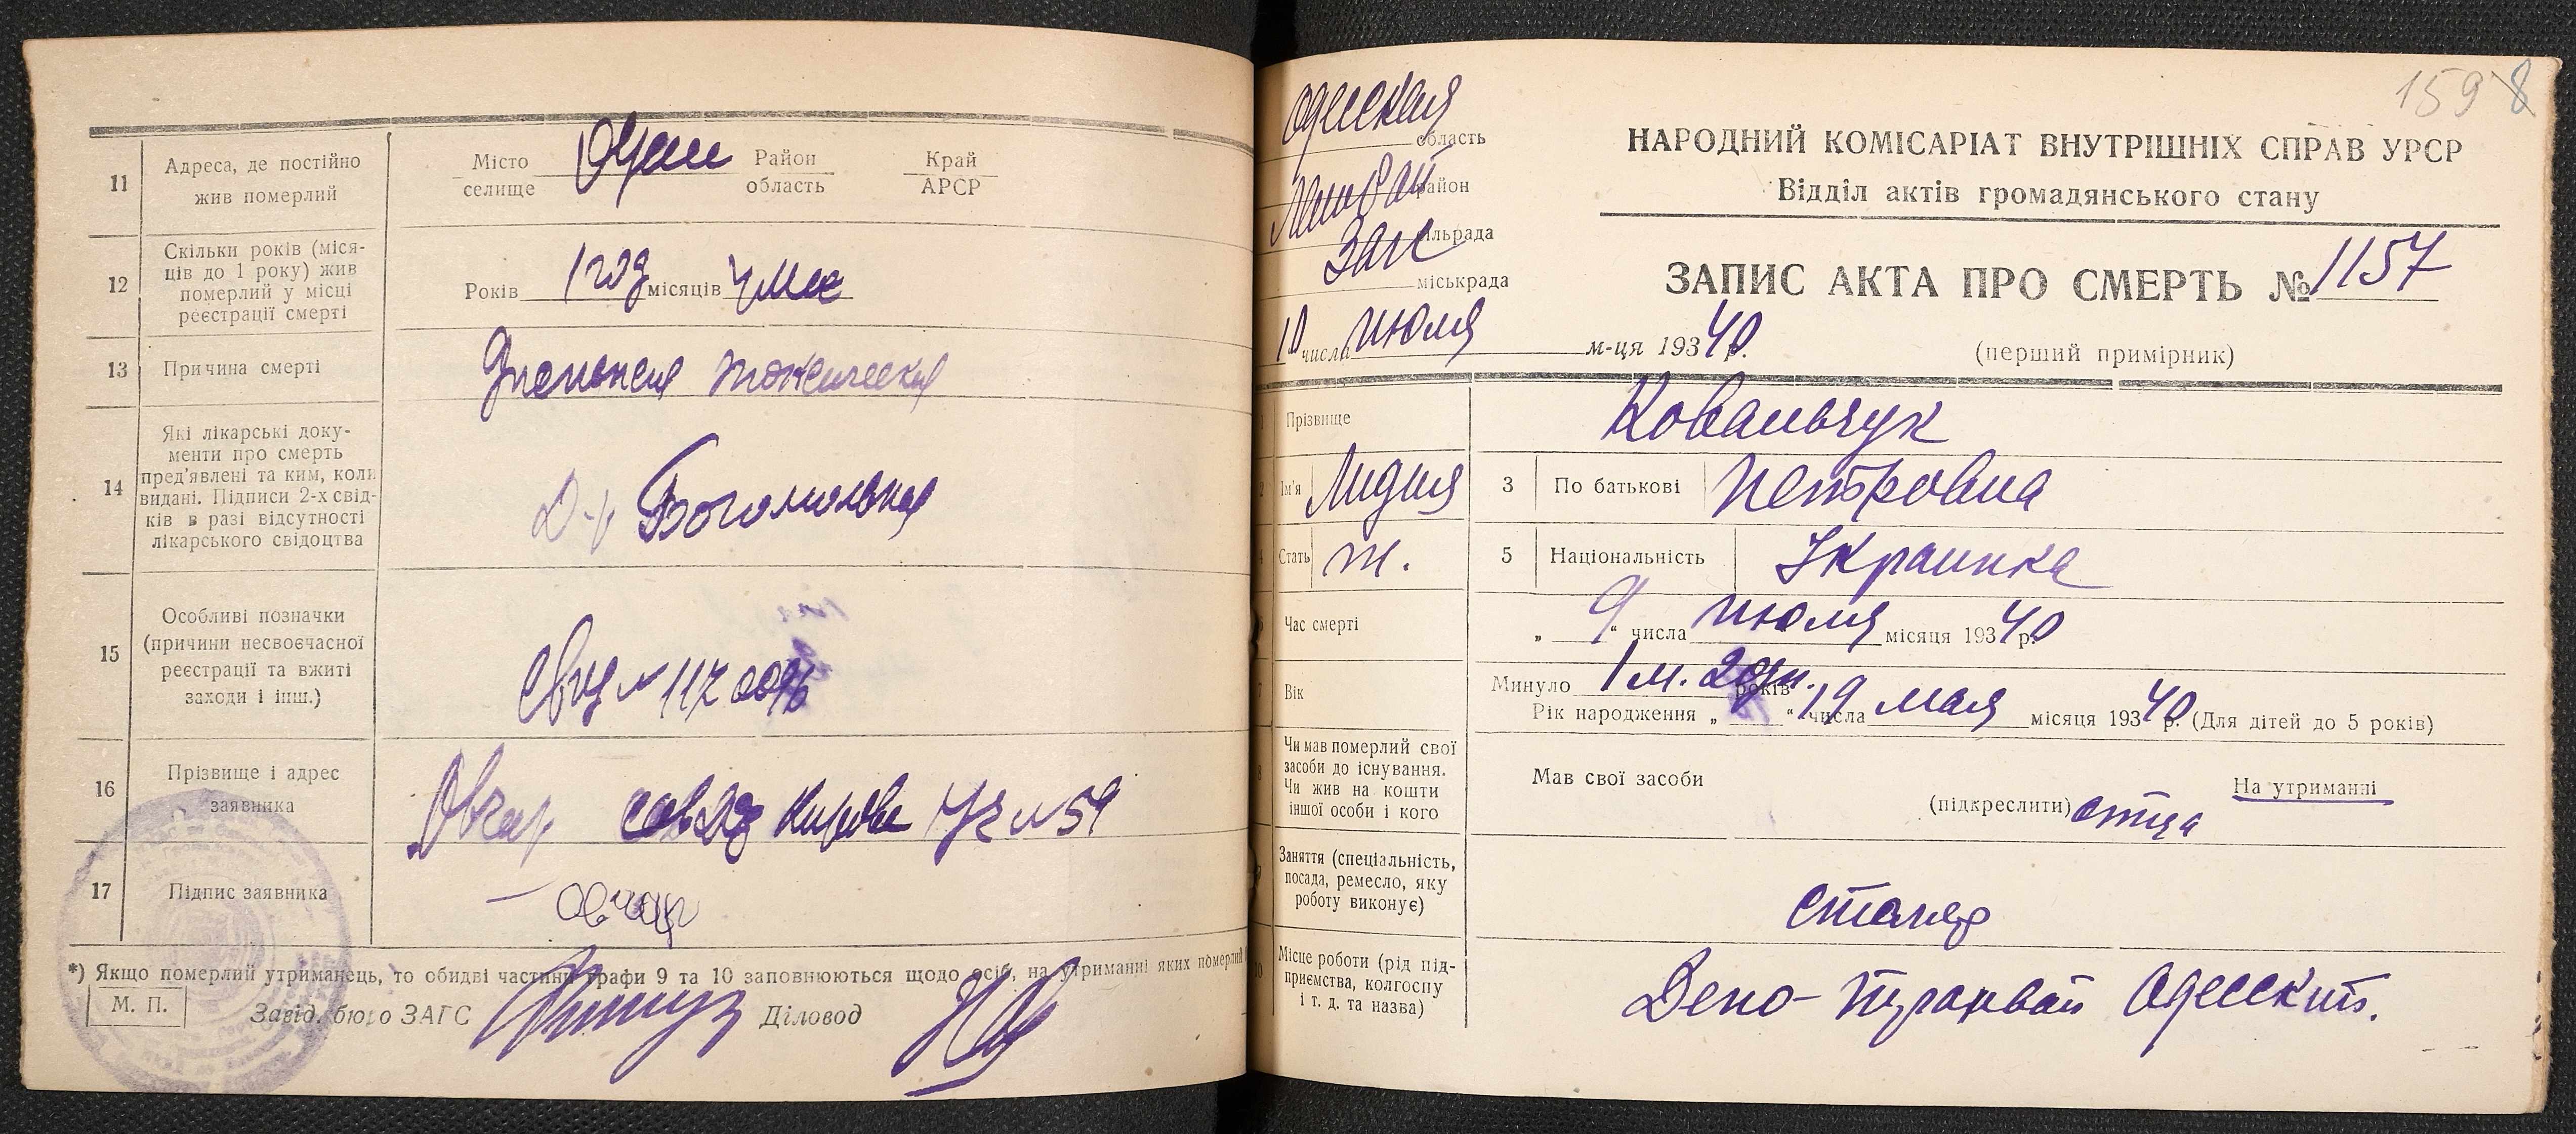 11
Адреса, де постійно
жив померлий
Місто
селище
Район
область
Край
АРСР
12
Скільки років (міся-
ців до 1 року) жив
померлий у місці
реєстрації смерті
Років 1 год місяців
13
Причина смерті
токсическая
14
Які лікарські доку-
менти про смерть
пред'явлені та ким, коли
видані. Підписи 2-х свід-
ків в разі відсутності
лікарського свідоцтва
Д-р Богомольная
15
Особливі позначки
(причини несвоєчасної
реєстрації та вжиті
заходи і інш.)
16
Прізвище і адрес
заявника
Овчар Кирова № 59
17
Підпис заявника
Овчар
*) Якщо померлий утриманець, то обидві частини графи 9 та 10 заповнюються щодо осіб, на утриманні яких померлий
М. П.
Завід. бюро ЗАГС
Діловод
159 8
Одесская область
район
Загс сільрада
міськрада
10 числа июля м-ця 1934 40 р.
НАРОДНИЙ КОМІСАРІАТ ВНУТРІШНІХ СПРАВ УРСР
Відділ актів громадянського стану
ЗАПИС АКТА ПРО СМЕРТЬ № 1157
(перший примірник)
Прізвище
Ковальчук
Ім'я
Лидия
3
По батькові
Петровна
Стать
ж.
5
Національність
Украинка
Час смерті
„ 9 “ числа июля місяця 193 40 р.
Вік
Минуло 1 м. років
Рік народження „ “ 19 числа мая місяця 193 40 р. (Для дітей до 5 років)
Чи мав померлий свої
засоби до існування.
Чи жив на кошти
іншої особи і кого
Мав свої засоби
На утриманні
(підкреслити) отца
Заняття (спеціальність,
посада, ремесло, яку
роботу виконує)
столяр
Місце роботи (рід під-
приємства, колгоспу
і т. д. та назва)
Депо-трамвай Одесский.